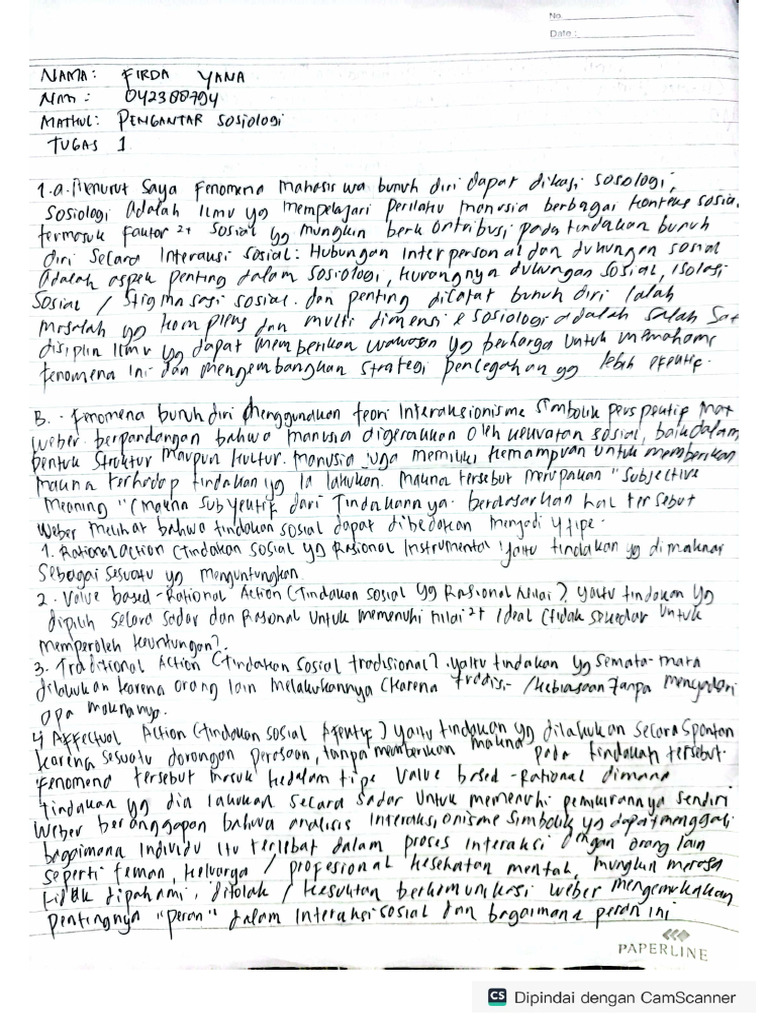 No
Date :
NAMA : FIRDA YANA
NIM : 042388794
MATKUL : PENGANTAR SOSIOLOGI
TUGAS 1
1.a. Menurut Saya Fenomena Mahasiswa bunuh diri dapat dikaji sosologi,
Sosiologi Adalah Ilmu yg mempelajari perilaku manusia berbagai konteks sosial,
termasuk faktor 2+ Sosial yg mungkin berkontribusi pada tindakan bunuh
diri Secara Interaksi sosial : Hubungan Interpersonal dan dukungan sosial
Adalah aspek penting dalam sosiologi, kurangnya dukungan Sosial, Isolasi
Sosial / Stigmasasi sosial. dan penting dicatat bunuh diri Ialah
masalah yg kompleks dan multi dimensi & sosiologi adalah salah Sat
disiplin Ilmu yg dapat memberikan wawasan yg berharga untuk memahami
fenomena Ini dan mengembangkan Strategi pencegahan yg lebih efektif.
B. . Fenomena bunuh diri Menggunakan teori Interaksionisme Simbolik perspektif Max
Weber. berpandangan bahwa manusia digerakkan Oleh kekuatan sosial, baik dalam
bentuk Struktur Maupun kultur. Manusia Juga memiliki kemampuan untuk memberikan
makna terhadap tindakan yg Ia lakukan. Makna tersebut merupakan "Subjective
Meaning" (Makna Subyektif dari Tindakannya. berdasarkan hal tersebut
Weber Melihat bahwa tindakan sosial dapat dibedakan menjadi 4 tipe.
1. Rational action (Tindakan sosial yg Rasional Instrumental) yaitu tindakan yg dimaknai
Sebagai sesuatu yg menguntungkan
2. Value based-Rational Action (Tindakan sosial yg Rasional Nilai) yaitu tindakan yg
dipilih secara sadar dan Rasional untuk memenuhi nilai 2+ Ideal (tidak sekedar untuk
memperoleh keuntungan).
3. Traditional Action (Tindakan sosial tradisional) .yaitu tindakan yg semata-mata
dilakukan karena orang lain Melakukannya (karena tradisi- / kebiasaan Tanpa menyadari
apa maknanya.
4 Affectual Action (Tindakan sosial Afektif) yaitu tindakan yg dilakukan secara Spontan
karena sesuatu dorongan perasaan, tanpa memberikan makna pada tindakan tersebut.
Fenomena tersebut masuk kedalam tipe Value based-Rational dimana
tindakan yg dia lakukan secara sadar Untuk memenuhi pemikirannya sendiri
Weber beranggapan bahwa analisis Interaksionisme Simbolik yg dapat menggali
bagaimana Individu Itu terlibat dalam proses interaksi dengan orang lain
seperti teman, keluarga / profesional kesehatan mental, mungkin merasa
tidak dipahami, ditolak / kesulitan berkomunikasi Weber mengemukakan
pentingnya "peran" dalam Interaksi sosial dan bagaimana peran ini
PAPERLINE
CS Dipindai dengan CamScanner